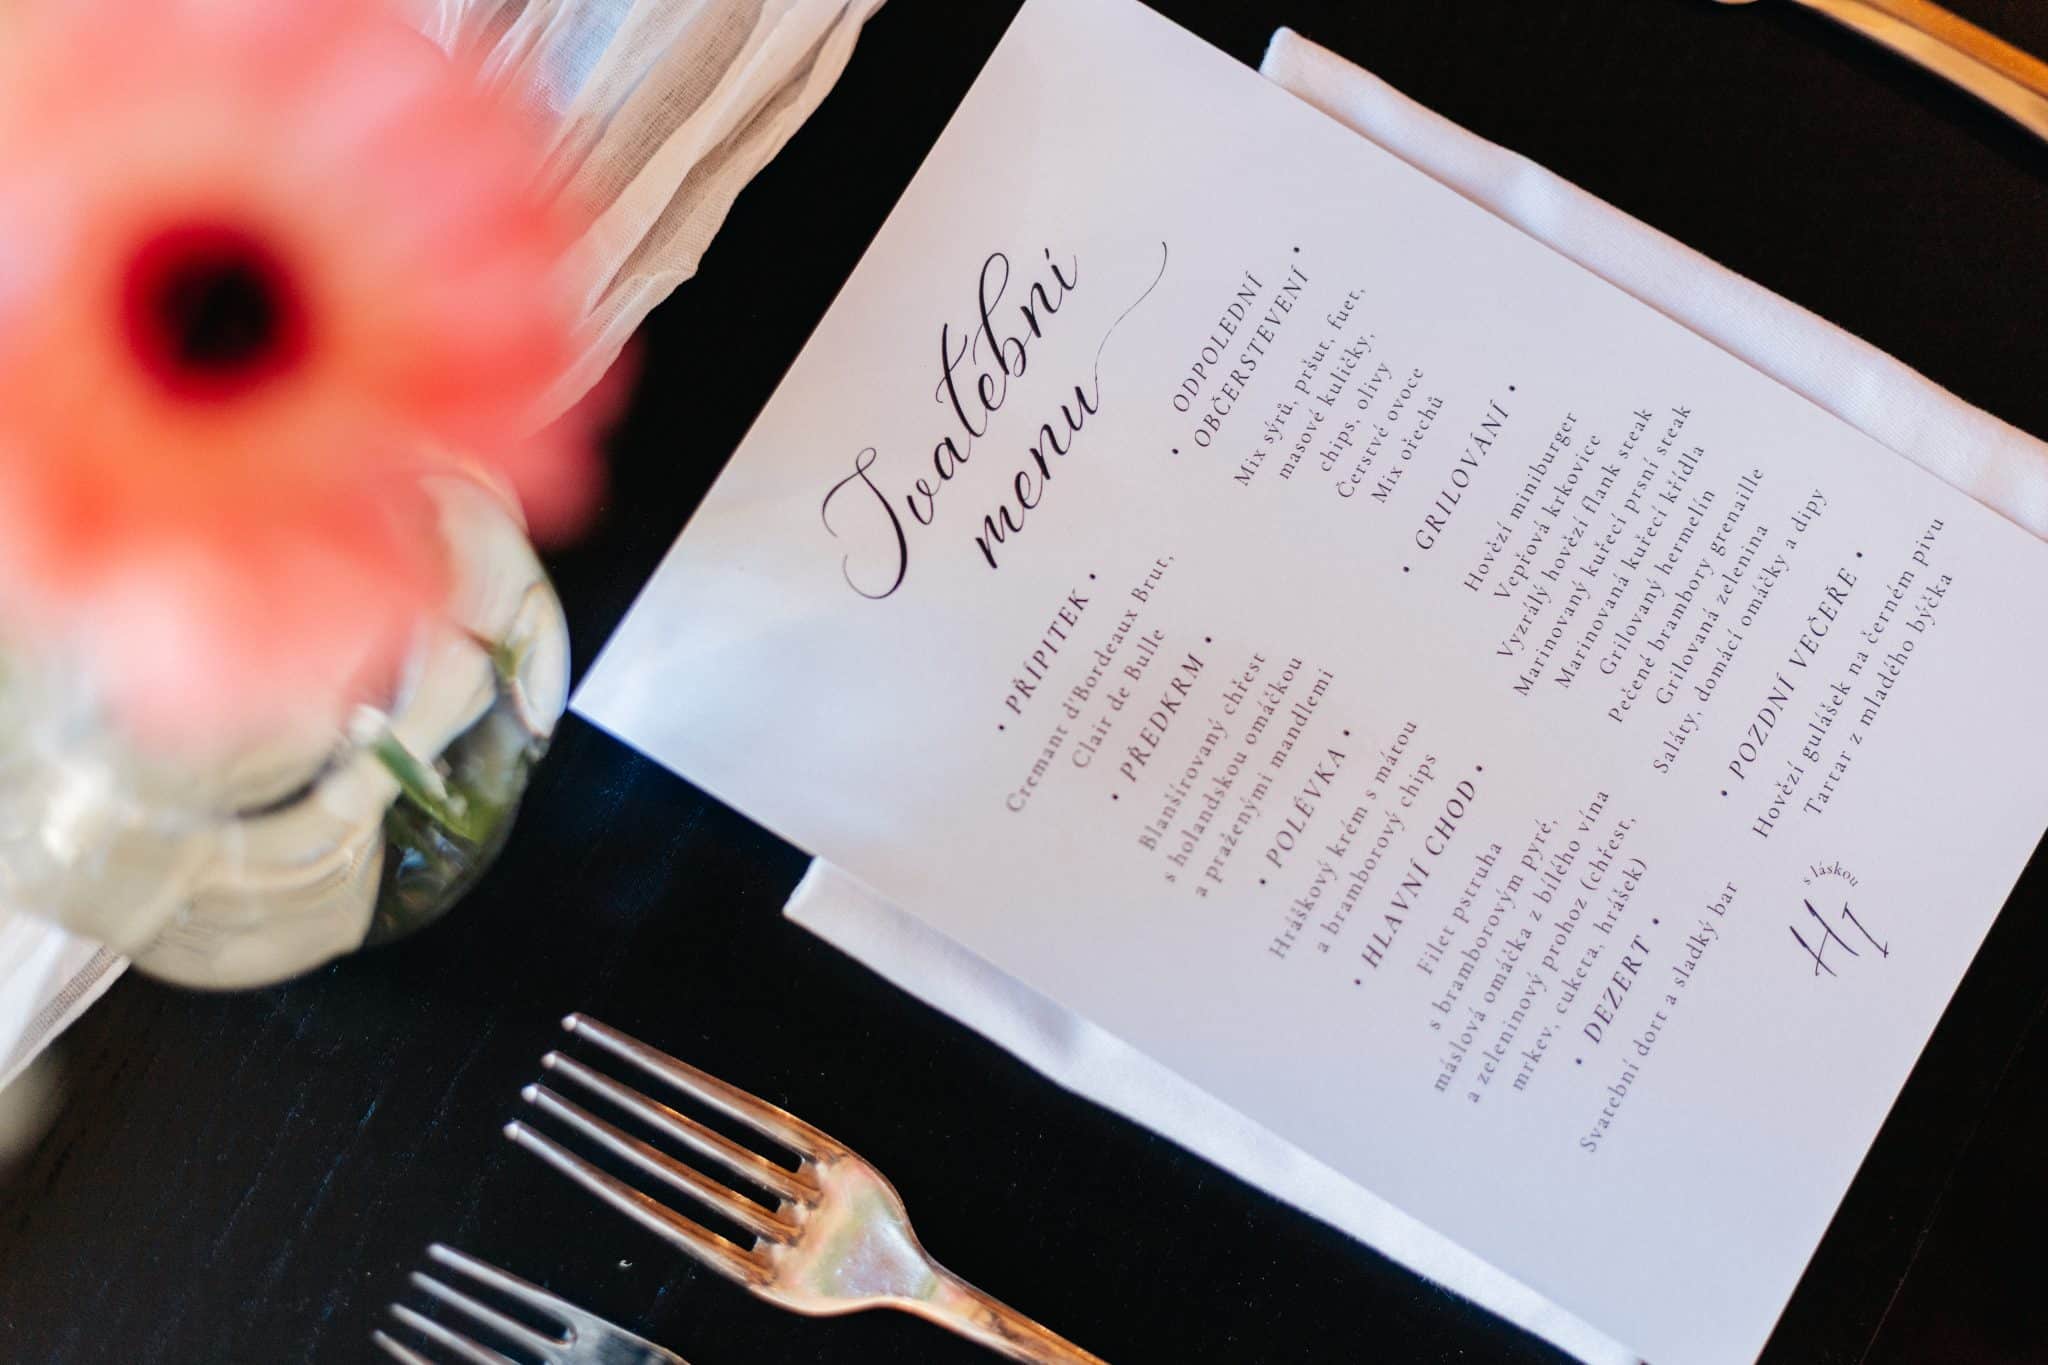 Svatební
menu
• PŘÍPITEK •
Cremant d'Bordeaux Brut,
Clair de Bulle
• PŘEDKRM •
Blanšírovaný chřest
s holandskou omáčkou
a praženými mandlemi
• POLÉVKA •
Hráškový krém s mátou
a bramborový chips
• HLAVNÍ CHOD •
Filet pstruha
s bramborovým pyré,
máslová omáčka z bílého vína
a zeleninový prohoz (chřest,
mrkev, cuketa, hrášek)
• DEZERT •
Svatební dort a sladký bar
ODPOLEDNÍ
• OBČERSTEVENÍ •
Mix sýrů, pršut, fuet,
masové kuličky,
chips, olivy
Čerstvé ovoce
Mix ořechů
• GRILOVÁNÍ •
Hovězí miniburger
Vepřová krkovice
Vyzrálý hovězí flank steak
Marinovaný kuřecí prsní steak
Marinovaná kuřecí křídla
Grilovaný hermelín
Pečené brambory grenaille
Grilovaná zelenina
Saláty, domácí omáčky a dipy
• POZDNÍ VEČEŘE •
Hovězí gulášek na černém pivu
Tartar z mladého býčka
s láskou
HI